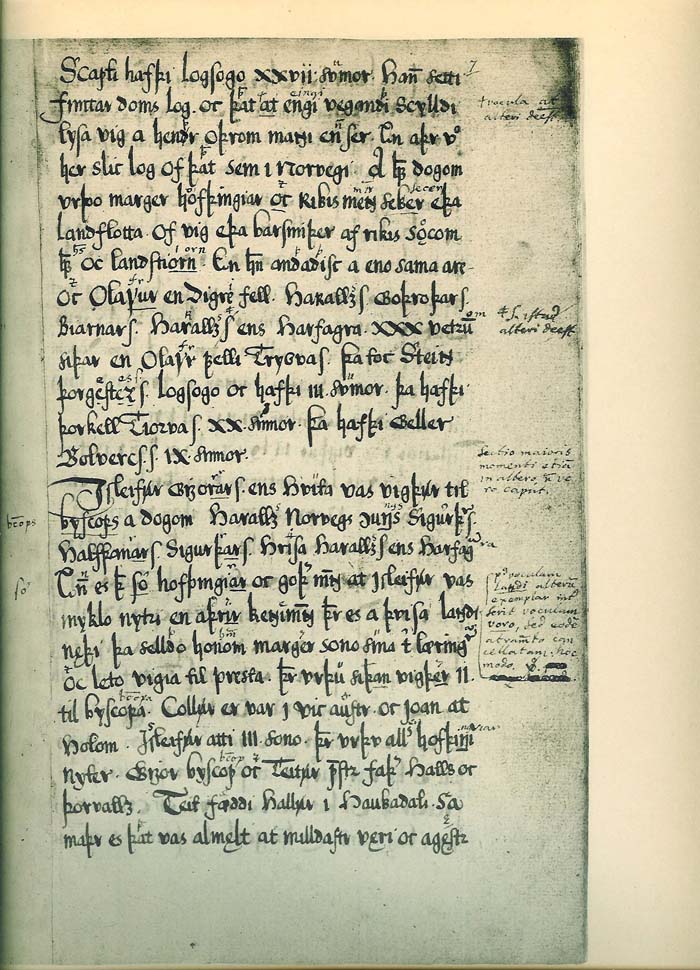 Scapti hafþi logsogo xxvii sumor. Han̄ setti
fimtar doms log. oc þat at engi vegandi scylldi
lysa vig a hendr oþrom manni en ser. En aþr v
her slic log of þat sem i Norvegi. A þs dogom
urþo marger hofþingiar oc rikis menn seker eþa
landflotta of vig eþa barsmiþer af rikis socom
hs oc landstiorn. En hn andaþisc a eno sama are
oc Olafur en Digre fell. Haralldz s Goþroþar s.
Biarnar s. Haralldz s ens Harfagra. xxx vetrū
siþar en Olafr felli Trygva s. þa toc Steinn
þorgestz s. logsogo oc hafþi iii sumor. þa hafþi
þorkell Tiorva s. xx. sumor. þa hafþi Geller
Bolvercs s. ix. sumor.
Isleifur Gizorar s. ens Hvita vas vigþur til
byscops a dogom Haralldz Norvegs
Halfdanar s. Sigurþar s. Hrisa Haralldz s ens Harfagra
En es þ so hofþingiar oc goþ mn at Isleifur vas
myklo nytri en aþrir kenimn þr es a þvisa landi
næþi þa selldo honom marger sono sina t læringar
oc leto vigia til presta. þr urþu siþan vigþer ii.
til byscopa. Collur er var i vic austr. oc Joan at
Holom. Isleifur atti iii. sono. þr urþu aller hofþingiar
nyter. Gizor byscop oc Teitur prestr faþer Halls oc
þorvalldz. Teit fæddi Hallur i Haukadali. Sa
maþr es þat vas almelt at milldastr veri oc agestr
7
vocula at
alteri deest
alteri deest
sectio maioris
momenti etiā
in altero, n̄ ve
ro caput.
bcops
so
voculam
landi alterū
exemplar
serit voculam
voro, sed eodē
atramto can
cellatam. hoc
modo.